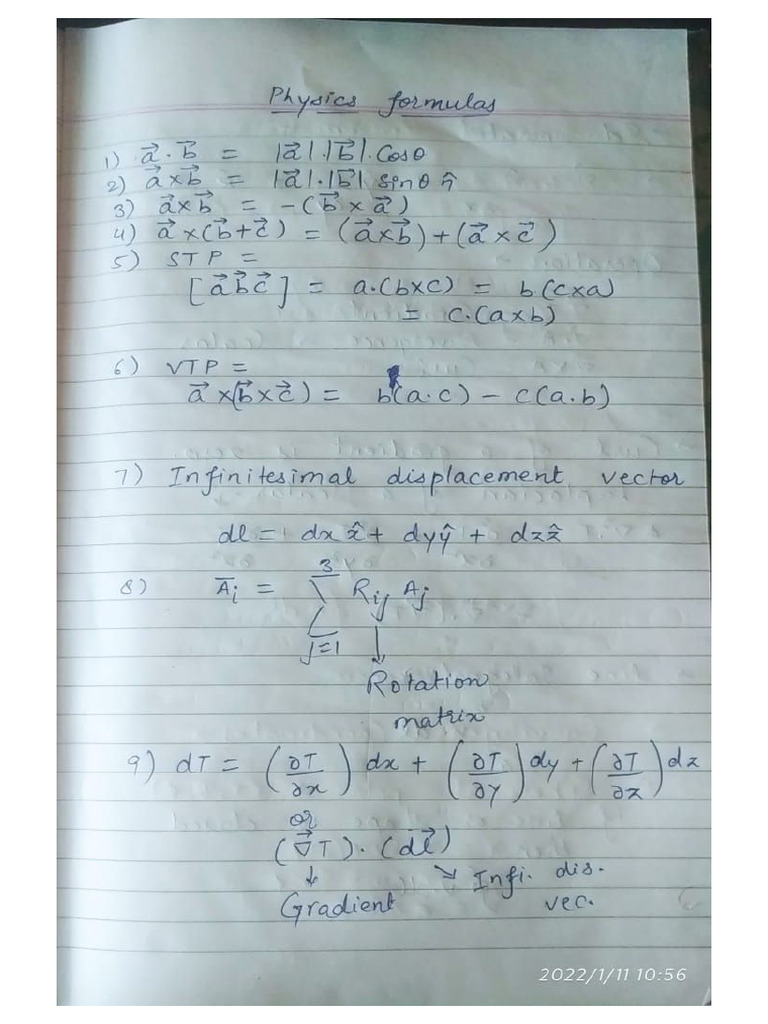 Physics formulas
1) a⃗ . b⃗ = |a⃗|.|b⃗|. Cosθ
2) a⃗ x b⃗ = |a⃗|.|b⃗| sinθ n̂
3) a⃗ x b⃗ = -(b⃗ x a⃗)
4) a⃗ x (b⃗ + c⃗) = (a⃗ x b⃗) + (a⃗ x c⃗)
5) STP =
[a⃗ b⃗ c⃗] = a.(bxc) = b.(cxa)
= c.(axb)
6) VTP =
a⃗ x (b⃗ x c⃗) = b(a.c) - c(a.b)
7) Infinitesimal displacement vector
dl = dx x̂ + dy ŷ + dz ẑ
8) A̅i = 3∑j=1 Rij Aj
↓
Rotation
matrix
9) dT = (∂T/∂x) dx + (∂T/∂y) dy + (∂T/∂z) dz
or
(∇⃗T).(dl⃗)
↓ ↘ Infi. dis.
Gradient vec.
2022/1/11 10:56